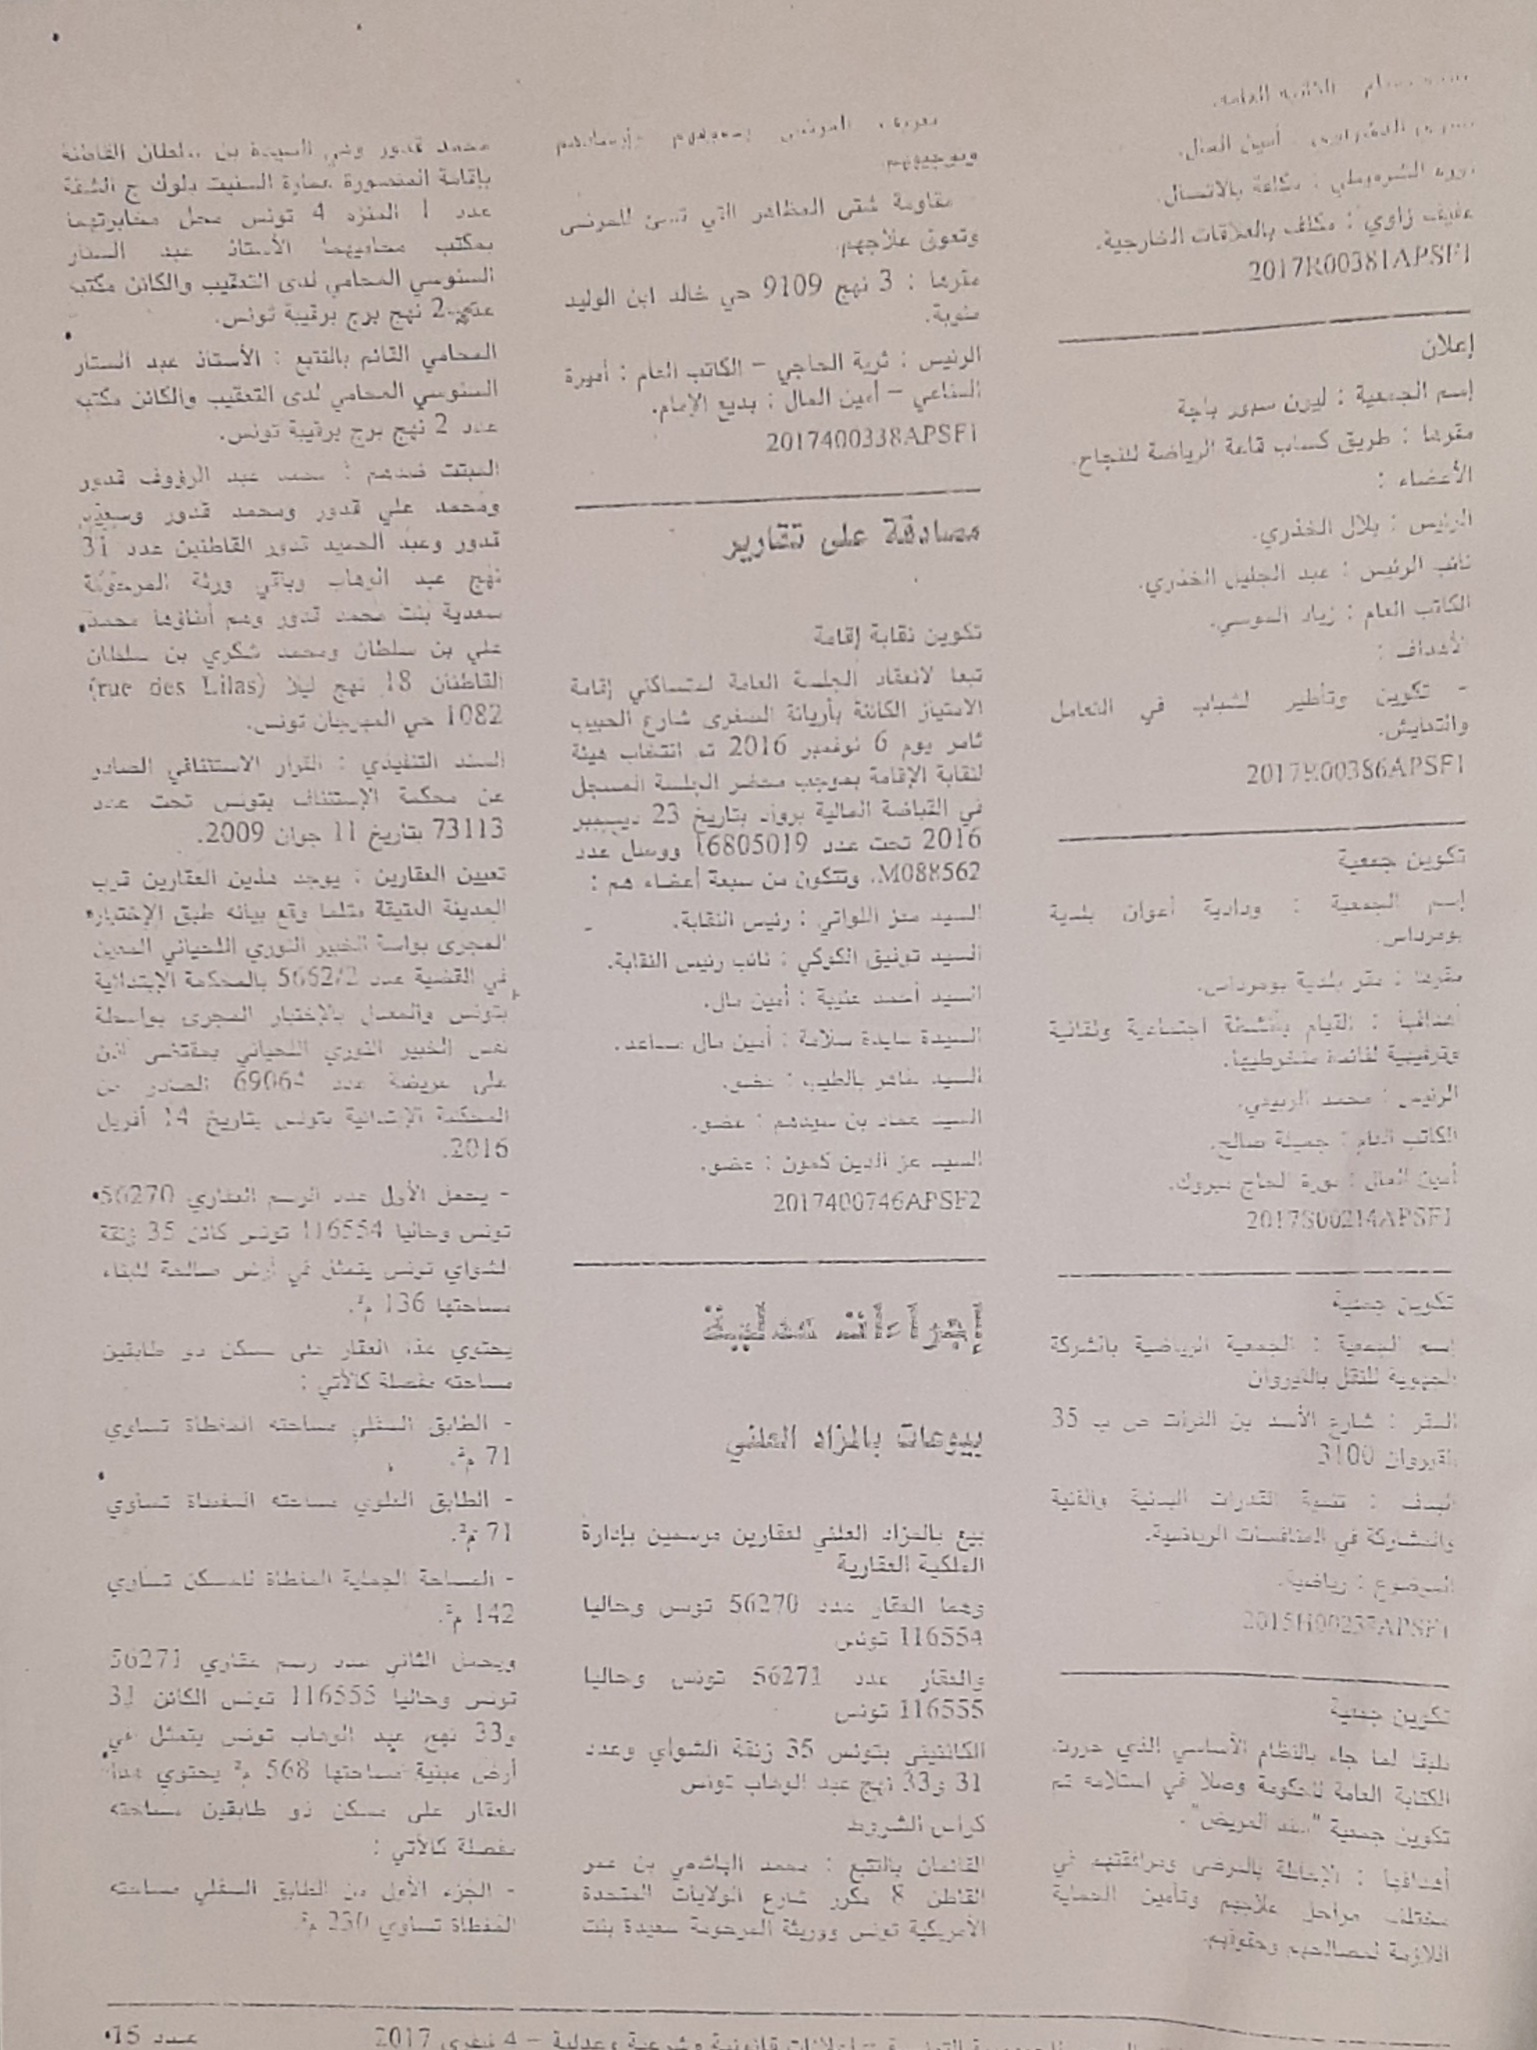 الكاتبة العامة.
أمين المال.
الشرميطي : مكلفة بالاتصال.
عفيف زاوي : مكلف بالعلاقات الخارجية.
2017R00381APSF1
إعلان
إسم الجمعية : ليزن سبور باجة
مقرها : طريق كساب قاعة الرياضة للنجاح.
الأعضاء :
الرئيس : بلال الخذري.
نائب الرئيس : عبد الجليل الخذري.
الكاتب العام : زياد الموسي.
الأهداف :
- تكوين وتأطير لشباب في التعامل
والتعايش.
2017R00386APSF1
تكوين جمعية
إسم الجمعية : ودادية أعوان بلدية
بومرداس.
مقرها : مقر بلدية بومرداس.
أهدافها : القيام بأنشطة اجتماعية وثقافية
وترفيهية لفائدة منخرطيها.
الرئيس : محمد الربيعي.
الكاتب العام : جميلة صالح.
أمين المال : نورة الحاج مبروك.
2017S00214APSF1
تكوين جمعية
إسم الجمعية : الجمعية الرياضية بالشركة
الجهوية للنقل بالقيروان
المقر : شارع الأسد بن الفرات ص ب 35
القيروان 3100
الهدف : تنمية القدرات البدنية والفنية
والمشاركة في المنافسات الرياضية.
الموضوع : رياضية.
2015H00237APSF1
تكوين جمعية
طبقا لما جاء بالنظام الأساسي الذي حررت
الكتابة العامة للحكومة وصلا في استلامه تم
تكوين جمعية "سند المريض".
أهدافها : الإحاطة بالمرضى ومرافقتهم في
مختلف مراحل علاجهم وتأمين الحماية
اللازمة لمصالحهم وحقوقهم.
المرضى
وتوجيههم.
مقاومة شتى المظاهر التي تسئ للمرضى
وتعوق علاجهم.
مقرها : 3 نهج 9109 حي خالد ابن الوليد
منوبة.
الرئيس : ثرية الحاجي – الكاتب العام : أميرة
السناعي – أمين المال : بديع الإمام.
2017400338APSF1
مصادقة على تقارير
تكوين نقابة إقامة
تبعا لانعقاد الجلسة العامة لمتساكني إقامة
الامتياز الكائنة بأريانة الصغرى شارع الحبيب
ثامر يوم 6 نوفمبر 2016 تم انتخاب هيئة
لنقابة الإقامة بموجب محضر الجلسة المسجل
في القباضة المالية برواد بتاريخ 23 ديسمبر
2016 تحت عدد 16805019 ووصل عدد
M088562. وتتكون من سبعة أعضاء هم :
السيد معز اللواتي : رئيس النقابة.
السيد توفيق الكوكي : نائب رئيس النقابة.
السيد أحمد عتيبة : أمين مال.
السيدة سايدة سلامة : أمين مال مساعد.
السيد بالطيب : عضو.
السيد عماد بن : عضو.
السيد عز الدين كمون : عضو.
2017400746APSF2
إجراءات عدلية
بيوعات بالمزاد العلني
بيع بالمزاد العلني لعقارين مرسمين بإدارة
الملكية العقارية
وهما العقار عدد 56270 تونس وحاليا
116554 تونس
والعقار عدد 56271 تونس وحاليا
116555 تونس
الكائنيني بتونس 35 زنقة الشواي وعدد
31 و33 نهج عبد الوهاب تونس
كراس الشروط
القائمان بالتتبع : محمد الهاشمي بن عمر
القاطن 8 مكرر شارع الولايات المتحدة
الأمريكية تونس وورثة المرحومة سعيدة بنت
محمد قدور وهي السيدة بن سلطان القاطنة
بإقامة المنصورة عمارة السفيت بلوك ج الشقة
عدد 1 المنزه 4 تونس محل مخابرتهما
بمكتب محاميهما الأستاذ عبد الستار
السنوسي المحامي لدى التعقيب والكائن مكتبه
عدد 2 نهج برج برقيبة تونس.
المحامي القائم بالتتبع : الأستاذ عبد الستار
السنوسي المحامي لدى التعقيب والكائن مكتبه
عدد 2 نهج برج برقيبة تونس.
المبتت ضدهم : محمد عبد الرؤوف قدور
ومحمد علي قدور ومحمد قدور وسعيد
قدور وعبد الحميد قدور القاطنين عدد 31
نهج عبد الوهاب وباقي ورثة المرحومة
سعدية بنت محمد قدور وهم أبناؤها محمد
علي بن سلطان ومحمد شكري بن سلطان
القاطنان 18 نهج ليلا (rue des Lilas)
1082 حي المهرجان تونس.
السند التنفيذي : القرار الاستئنافي الصادر
عن محكمة الإستئناف بتونس تحت عدد
73113 بتاريخ 11 جوان 2009.
تعيين العقارين : يوجد هذين العقارين قرب
المدينة العتيقة مثلما وقع بيانه طبق الإختبار
المجرى بواسة الخبير النوري اللحياني المعين
في القضية عدد 56622 بالمحكمة الإبتدائية
بتونس والمعدل بالإختبار المجرى بواسطة
نفس الخبير النوري اللحياني بمقتضى اذن
على عريضة عدد 69064 الصادر عن
المحكمة الإبتدائية بتونس بتاريخ 14 أفريل
2016.
- يحمل الأول عدد الرسم العقاري 56270
تونس وحاليا 116554 تونس كائن 35 زنقة
الشواي تونس يتمثل في أرض صالحة للبناء
مساحتها 136 م².
يحتوي هذا العقار على مسكن ذو طابقين
مساحته مفصلة كالآتي :
- الطابق السفلي مساحته المغطاة تساوي
71 م².
- الطابق العلوي مساحته المغطاة تساوي
71 م².
- المساحة الجملية المغطاة للمسكن تساوي
142 م².
ويحمل الثاني عدد رسم عقاري 56271
تونس وحاليا 116555 تونس الكائن 31
و33 نهج عبد الوهاب تونس يتمثل في
أرض مبنية مساحتها 568 م² يحتوي هذا
العقار على مسكن ذو طابقين مساحته
مفصلة كالآتي :
- الجزء الأول من الطابق السفلي مساحته
المغطاة تساوي 230 م².
إعلانات قانونية وشرعية وعدلية – 4 فيفري 2017
عدد 15